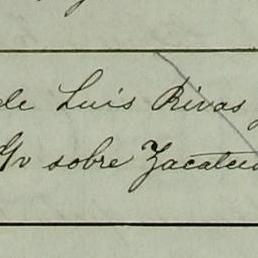 de Luis Rivas
sobre Zacatec